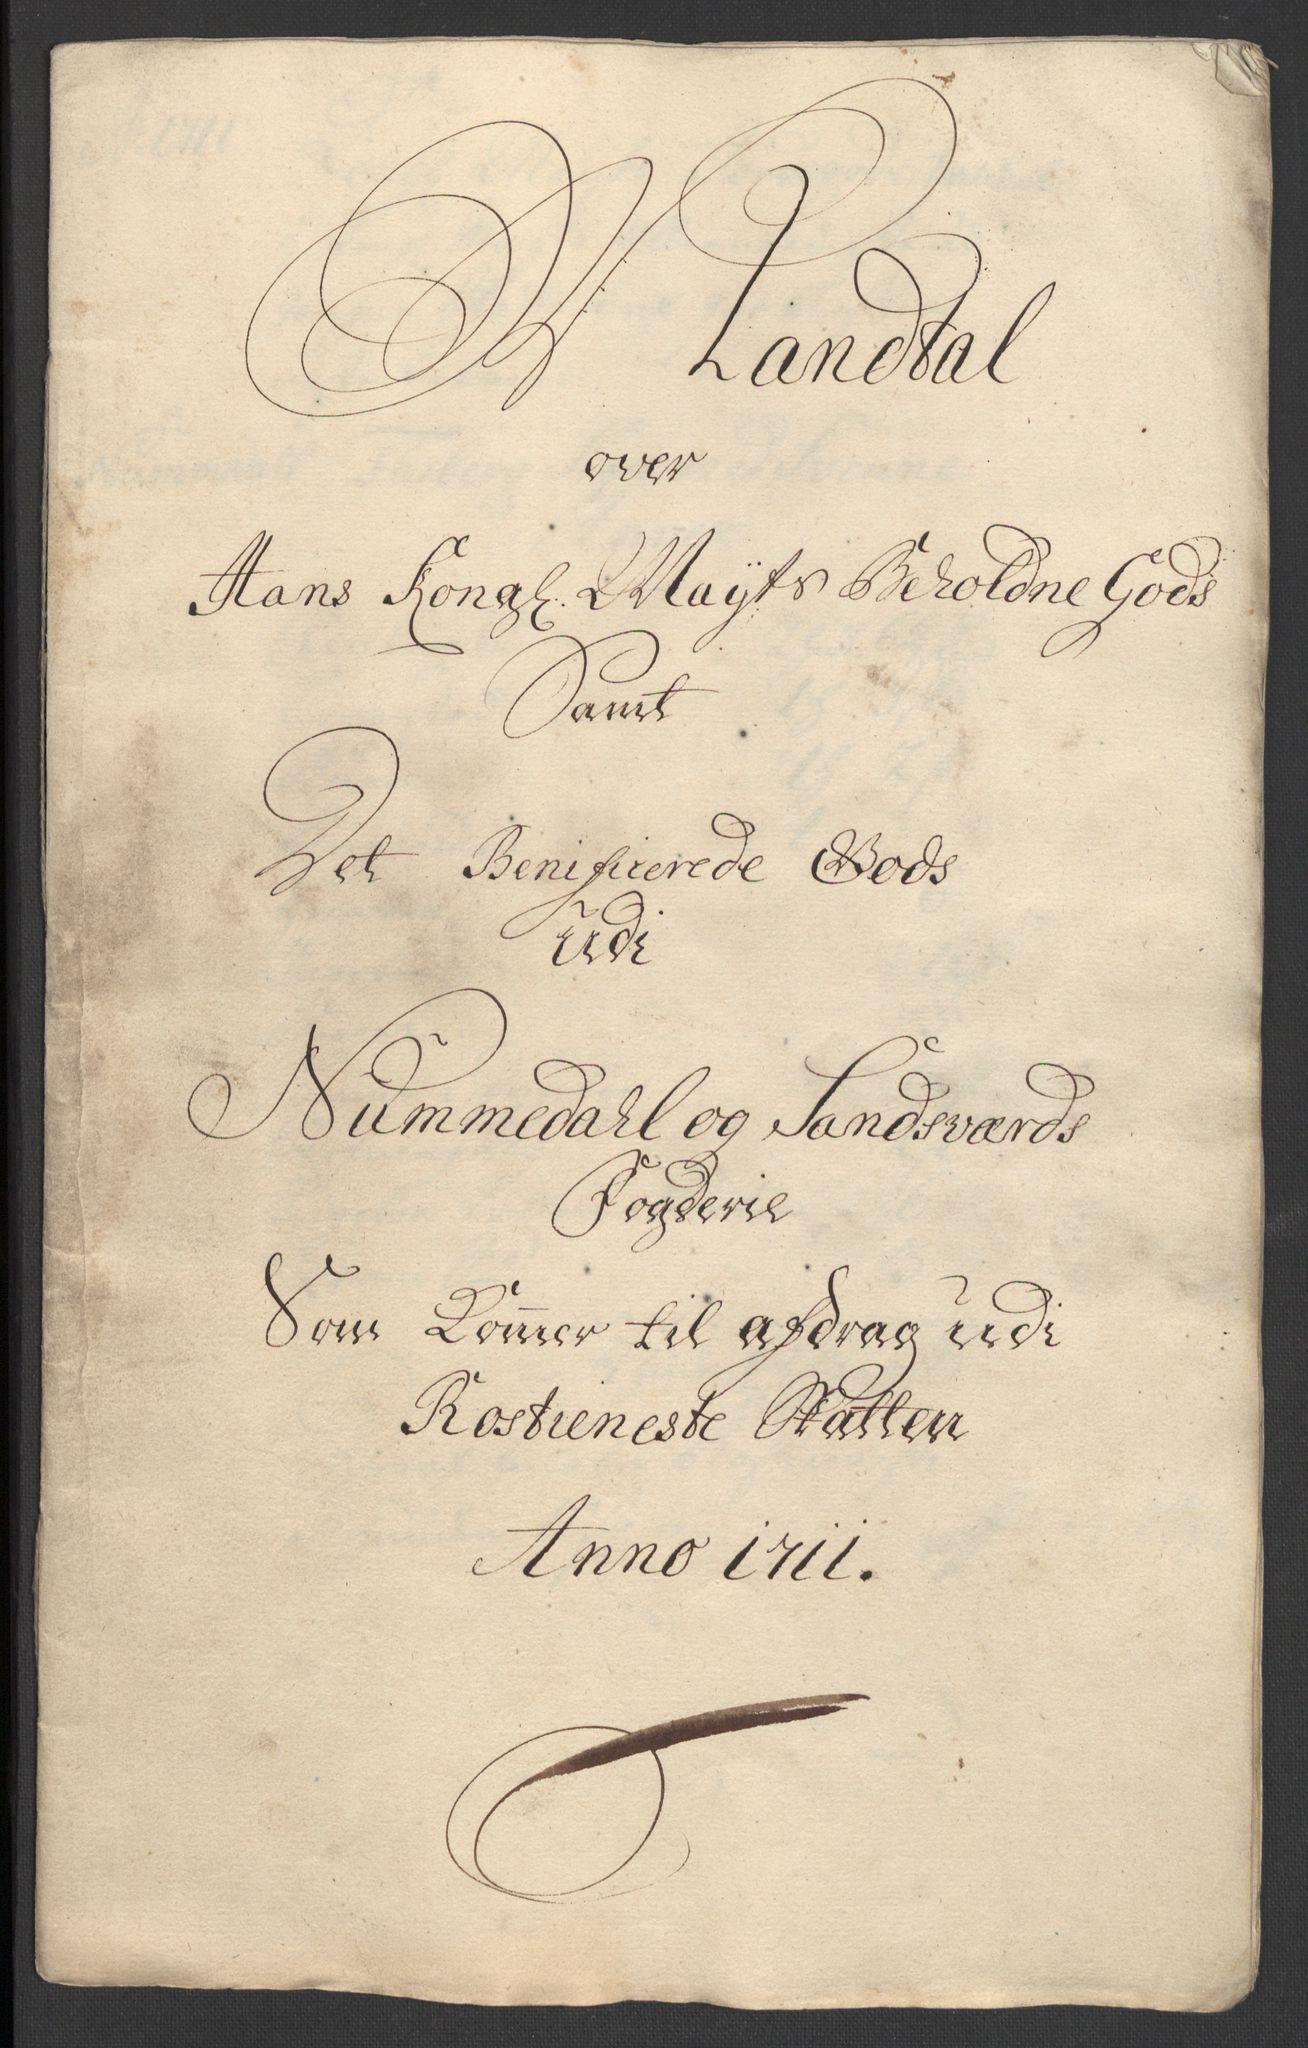 Landtal
over
Hans Kongl. Mayts Beholdne Gods
Samt
Det Benificerede Gods
udi
Nummedahl og Sandsværds
Fogderie
Som Kom̄er til afdrag udi
Rostieneste Skatten
Anno 1711.